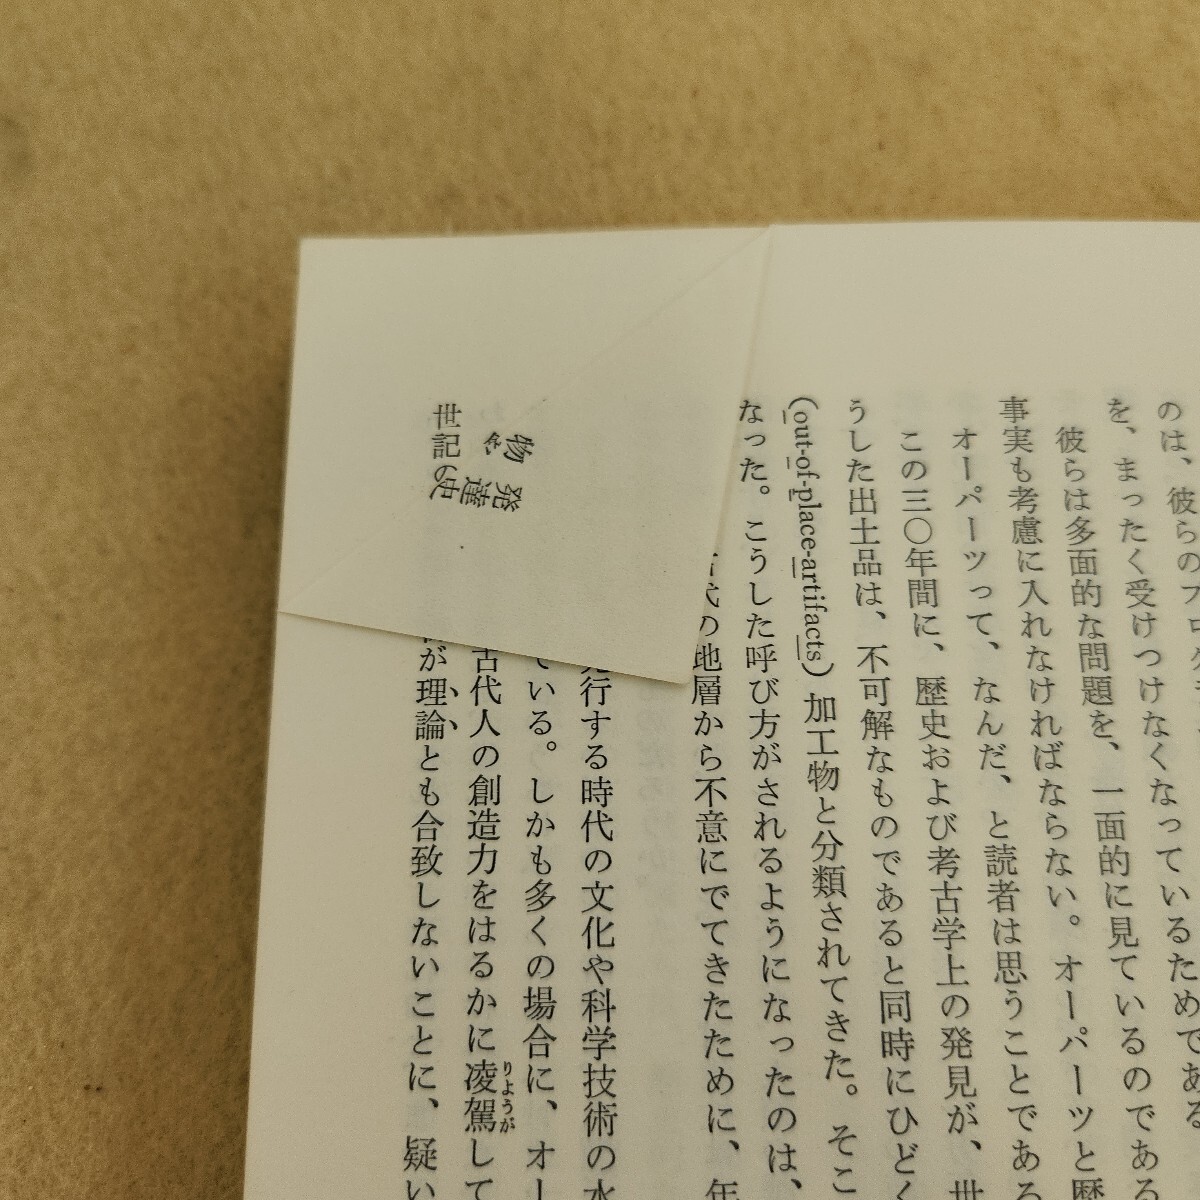 のは、彼らのプログ
を、まったく受けつけなくなっているためである
彼らは多面的な問題を、一面的に見ているのである
事実も考慮に入れなければならない。オーパーツと歴
オーパーツって、なんだ、と読者は思うことである
この三〇年間に、歴史および考古学上の発見が、世
うした出土品は、不可解なものであると同時にひどく
(out-of-place-artifacts)加工物と分類されてきた。そこ
なった。こうした呼び方がされるようになったのは、
代の地層から不意にでてきたために、年
行する時代の文化や科学技術の水
ている。しかも多くの場合に、オー
古代人の創造力をはるかに凌駕して
りようが
が理論とも合致しないことに、疑い
世記の
物を
発達史